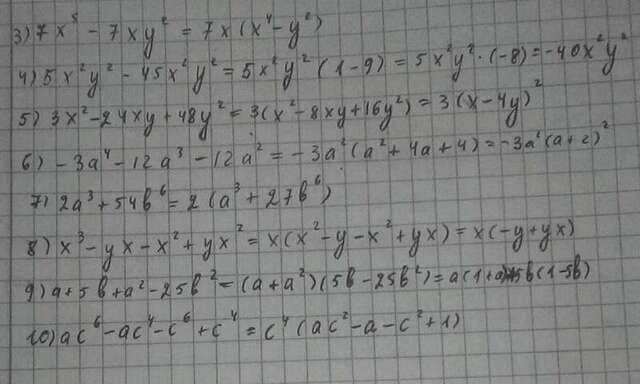 3) 7x⁵ - 7xy² = 7x(x⁴ - y²)
4) 5x²y² - 45x²y² = 5x²y²(1-9) = 5x²y²·(-8) = -40x²y²
5) 3x² - 24xy + 48y² = 3(x² - 8xy + 16y²) = 3(x - 4y)²
6) -3a⁴ - 12a³ - 12a² = -3a²(a² + 4a + 4) = -3a²(a + 2)²
7) 2a³ + 54b⁶ = 2(a³ + 27b⁶)
8) x³ - yx - x² + yx² = x(x² - y - x² + yx) = x(-y + yx)
9) a + 5b + a² - 25b² = (a + a²)(5b - 25b²) = a(1 + a) 5b(1 - 5b)
10) ac⁶ - ac⁴ - c⁶ + c⁴ = c⁴(ac² - a - c² + 1)